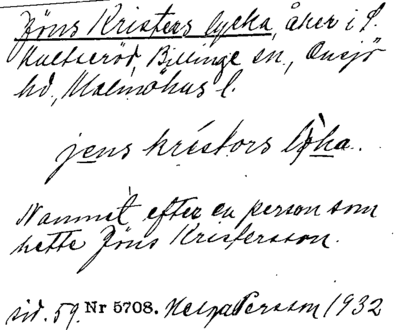 Jöns Kristers lycka, åker i f.
Hultseröd, Billinge sn., Onsjö
hd., Malmöhus l.
jens kristors lỳka.
Namnet efter en person som
hette Jöns Kristersson.
sid. 59. Nr 5708. Helga Persson 1932